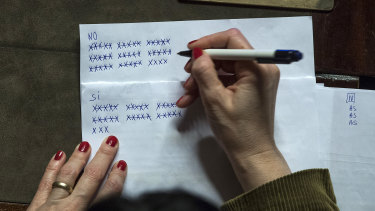 NO
XXXXX XXXXX XXXXX
XXXXX XXXXX XXXXX
XXXXX XXXXX XXXX
SI
XXXXX XXXXX XXXXX
XXXXX XXXXX XXXXX
XXX
N